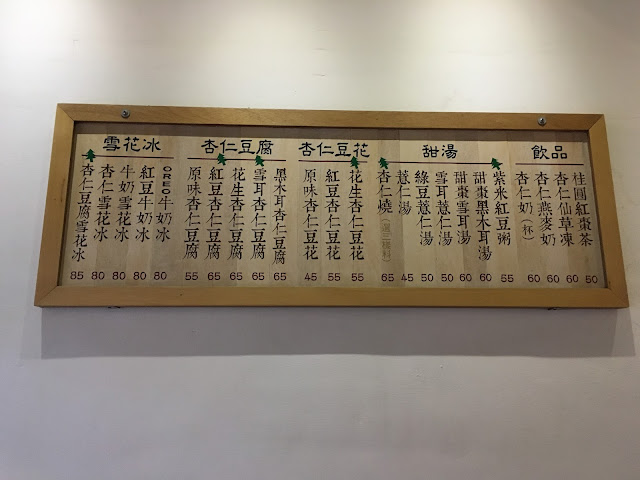 雪花冰
杏仁豆腐雪花冰 85
杏仁雪花冰 80
牛奶雪花冰 80
紅豆牛奶冰 80
OREO牛奶冰 80
杏仁豆腐
原味杏仁豆腐 55
紅豆杏仁豆腐 65
花生杏仁豆腐 65
雪耳杏仁豆腐 65
黑木耳杏仁豆腐 65
杏仁豆花
原味杏仁豆花 45
紅豆杏仁豆花 55
花生杏仁豆花 55
甜湯
杏仁燒(選三種料) 65
薏仁湯 45
綠豆薏仁湯 50
雪耳薏仁湯 50
甜棗雪耳湯 60
甜棗黑木耳湯 60
紫米紅豆粥 55
飲品
杏仁奶(杯) 60
杏仁燕麥奶 60
杏仁仙草凍 60
桂圓紅棗茶 50